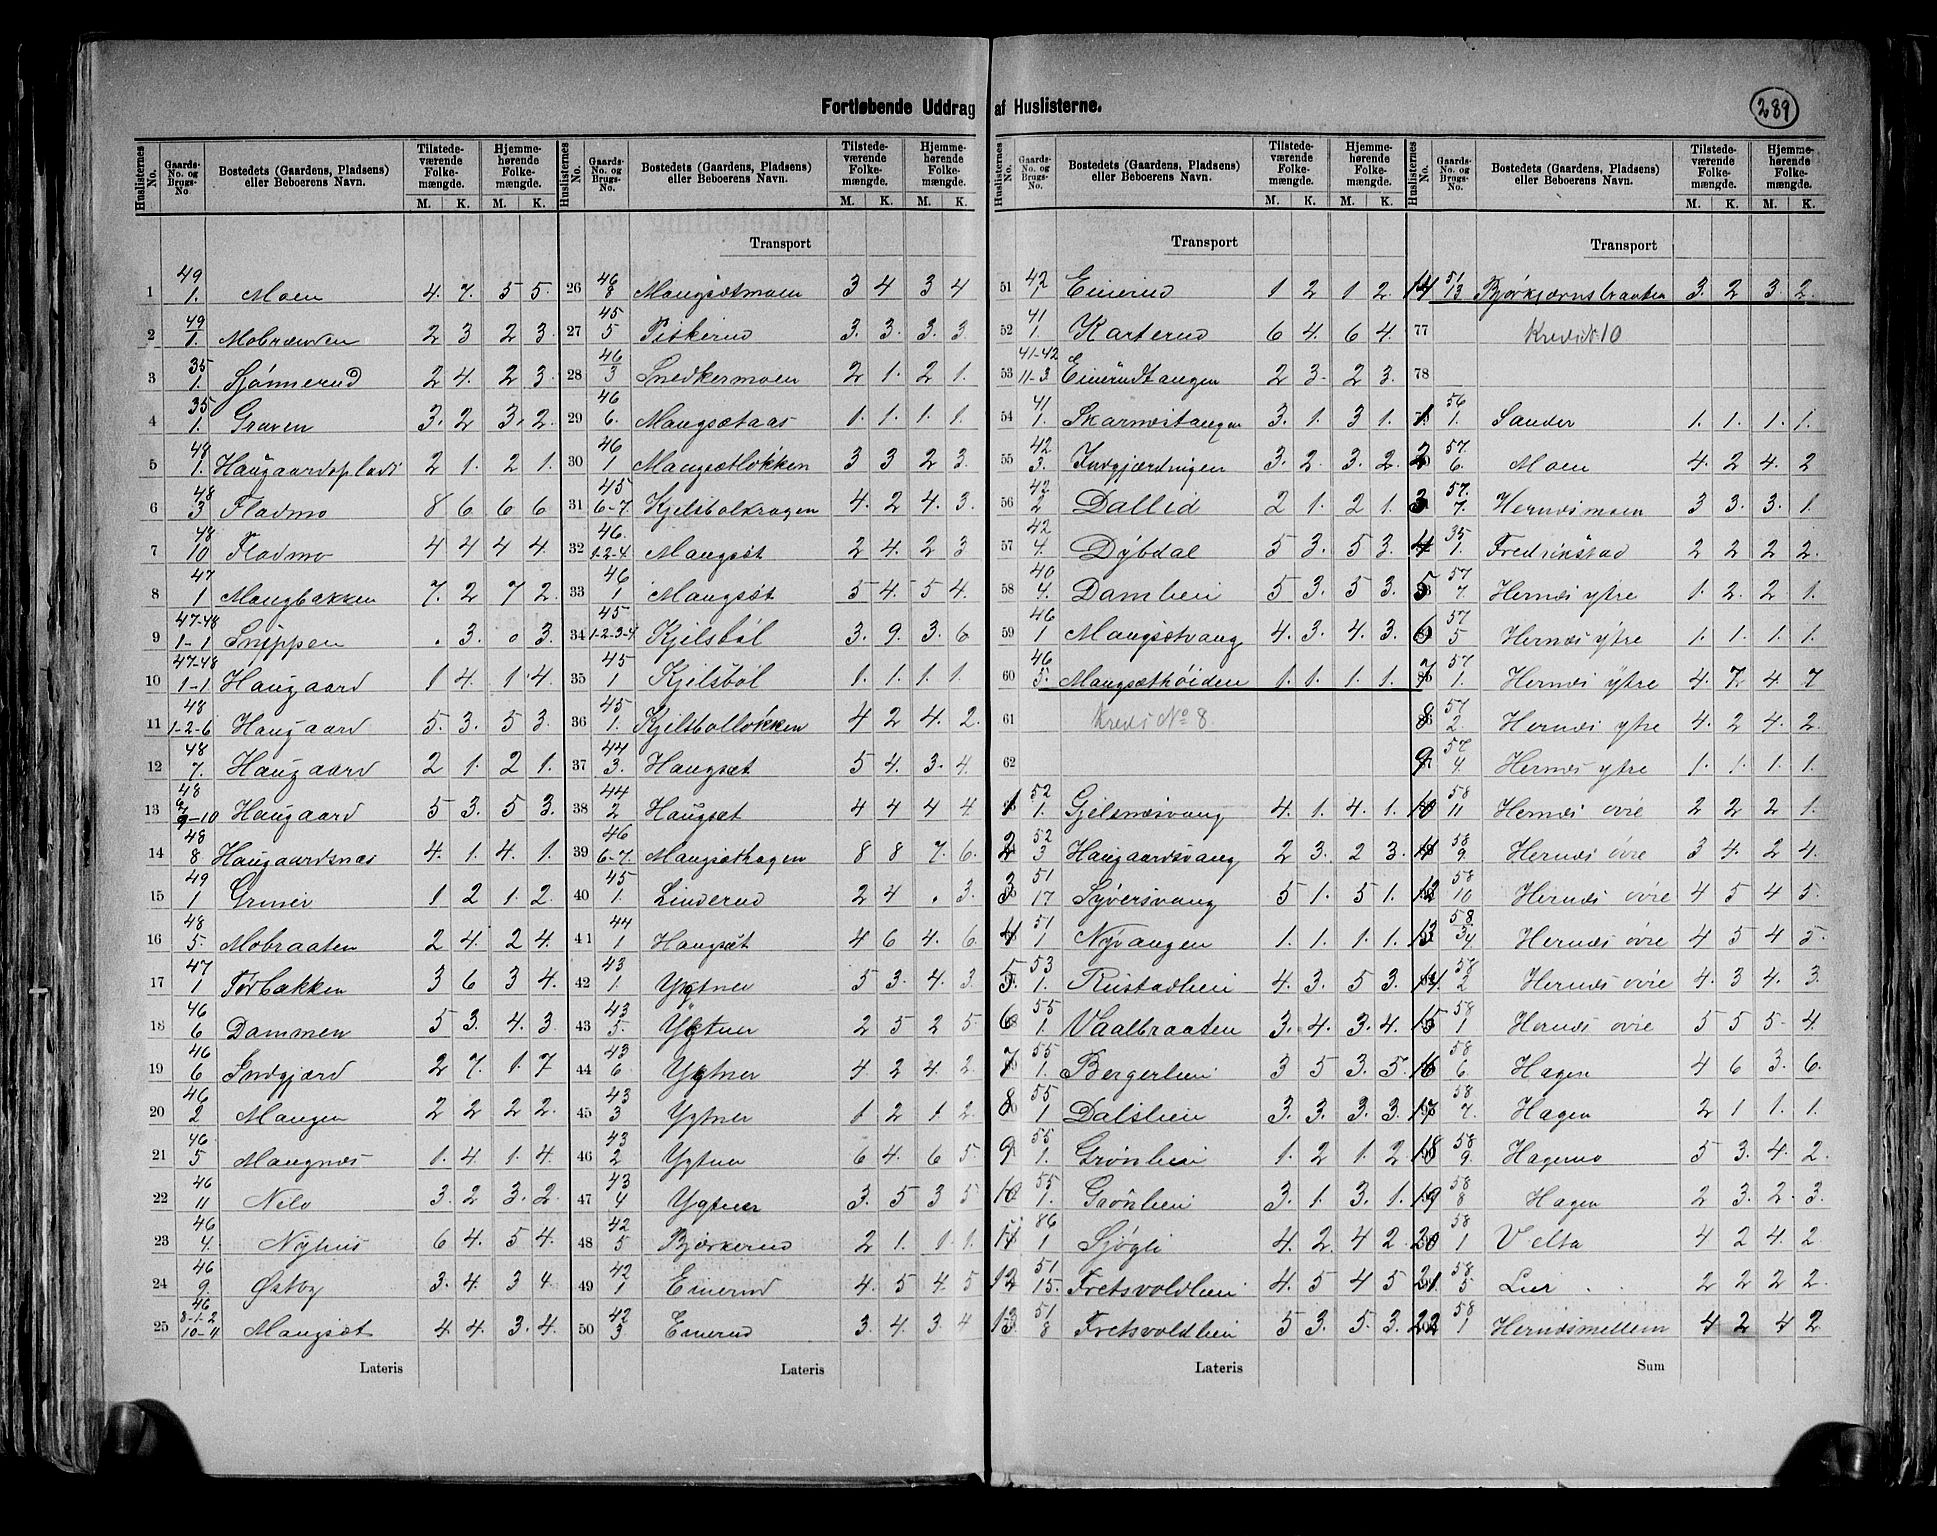 Fortløbende Uddrag af Huslisterne.
289
Huslisternes No. Gaards-No. og Brugs-No. Bostedets (Gaardens, Pladsens) eller Beboerens Navn. Tilstedeværende Folkemængde. M. K. Hjemmehørende Folkemængde. M. K.
1 49/1. Moen 4. 7. 5 5.
2 49/1. Mobrænden 2 3 2 3.
3 35/1. Sjønnerud 2 4. 2 3.
4 35/1. Graven 3. 2 3. 2.
5 48/1. Haugaardsplads 2 1. 2 1.
6 48/3 Fladmo 8 6 6 6
7 48/10 Fladmo 4 4 4 4.
8 47/1 Mangbakken 7. 2 7 2.
9 47-48/1-1 Snippen . 3. o 3.
10 47-48/1-1 Haugaard 1 4. 1. 4.
11 48/1-2-6 Haugaard 5. 3. 5 3.
12 48/7. Haugaard 2 1. 2 1.
13 48/9-10 Haugaard 5 3. 5 3.
14 48/8 Haugaardsnæs 4. 1. 4. 1.
15 49/1 Grener 1 2 1. 2.
16 48/5. Mobraaten 2 4. 2 4.
17 47/1 Torbakken 3 6 3 4.
18 46/6 Dammen 5 3. 4. 3
19 46/6 Indgjærd 2 7. 1. 7
20 46/2 Mangen 2 2 2 2.
21 46/5 Mangnæs 1. 4. 1. 4.
22 46/11 Nilo 3. 2 3. 2.
23 46/4. Nyhus 6 4. 5 4.
24 46/9. Østby 3. 4. 3 4.
25 46/8-1-2 10-4 Mangsæt 4 4. 3. 4.
Lateris
Huslisternes No. Gaards-No. og Brugs-No. Bostedets (Gaardens, Pladsens) eller Beboerens Navn. Tilstedeværende Folkemængde. M. K. Hjemmehørende Folkemængde. M. K.
Transport
26 46/8 Mangsætmoen 3 4 3 4
27 45/5 Piskerud 3. 3. 3. 3
28 46/3 Snedkermoen 2 1. 2 1.
29 46/6. Mangsætaas 1. 1. 1. 1.
30 46/1 Mangsætløkken 3 3 2 3.
31 45/6-7. Kjelsbølkragen 4. 2 4. 3.
32 46./1-2-4. Mangsæt 2 4. 2 3
33 46/1 Mangsæt 5 4. 5 4.
34 45/1-2-3-4. Kjelsbøl 3. 9. 3. 6
35 45/1 Kjelsbøl 1. 1. 1. 1.
36 45/1. Kjelsbølløkken 4 2 4. 2.
37 44/3. Haugsæt 5 4. 3. 4.
38 44/2 Haugsæt 4 4 4 4.
39 46/6-7. Mangsæthagen 8 8 7. 6.
40 45/1. Linderud 2 4 . 3.
41 44/1 Haugsæt 4 6 4. 6.
42 43/1. Ygtner 5 3. 4. 3.
43 43/5. Ygtner 2 5 2 5
44 43/6. Ygtner 4. 2 4. 2
45 43/3 Ygtner 1 2 1. 2.
46 43/2 Ygtner 6 4. 6 5
47 43/4 Ygtner 3. 5 3 5
48 42/5 Bjørkerud 2 1. 1. 1.
49 42/1 Emerud 4. 5 4. 5
50 42/3 Emerud 3. 4. 3. 4
Lateris
Huslisternes No. Gaards-No. og Brugs-No. Bostedets (Gaardens, Pladsens) eller Beboerens Navn. Tilstedeværende Folkemængde. M. K. Hjemmehørende Folkemængde. M. K.
Transport
51 42/1 Emerud 1 2 1 2.
52 41/1. Karterud 6 4. 6 4.
53 41-42/11-3 Emerudtangen 2 3. 2 3.
54 41/1. Skarnestangen 3. 1. 3 1.
55 42/3. Indgjærdningen 3. 2. 3. 2.
56 42/2 Dallid 2 1. 2 1.
57 42/4. Dybdal 5 3. 5 3.
58 40/4. Damlien 5 3. 5 3.
59 46/1 Mangsætvang 4. 3. 4. 3.
60 46/3. Mangsæthøiden 1. 1. 1. 1.
61 Kreds No 8.
62
1 52/1. Gjelsnæsvang 4. 1. 4. 1.
2 52/3 Haugaardsvang 2 3. 2 3.
3 51/17 Syversvang 5 1. 5 1.
4 51/1 Nyvangen 1. 1. 1. 1.
5 53/1. Rustadlien 4. 3. 5 3.
6 55/1. Vaalbraaten 3. 4. 3. 4.
7 55/1. Bergerlien 3 5 3. 5.
8 55/1 Dalslien 3. 3. 3. 3.
9 55/1. Grønlien 1. 2 1. 2
10 55/1. Grønlien 3. 1. 3. 1.
11 86/1 Sjøgli 4. 2. 4 2.
12 51/15. Fretsvoldlien 4. 5 4 5
13 51/8 Fretsvoldlien 5 3. 5. 3
Lateris
Huslisternes No. Gaards-No. og Brugs-No. Bostedets (Gaardens, Pladsens) eller Beboerens Navn. Tilstedeværende Folkemængde. M. K. Hjemmehørende Folkemængde. M. K.
Transport
14 51/13 Bjørkjernsbraaten 3. 2 3. 2.
77 Kreds 10
78
1 56/1. Sander 1. 1. 1. 1.
2 57./6. Moen 4. 2 4. 2
3 57./7. Hernæsmoen 3 3. 3. 1.
4 35/1. Fredrikstad 2 2 2 2.
5 57/7. Hernæs ytre 1. 2. 2 1.
6 57/5 Hernæs ytre 1. 1. 1. 1.
7 57./1. Hernæs ytre 4. 7. 4. 7
8 57/2. Hernæs ytre 4. 2 4. 2.
9 57/4. Hernæs ytre 1. 1. 1. 1.
10 58/11 Hernæs øvre 2 2 2 1.
11 58/9. Hernæs øvre 3 4. 2 4.
12 58/10 Hernæs øvre 4 5 4 5.
13 58/3/4 Hernæs øvre 4 5 4 5.
14. 58/2 Hernæs øvre 4. 3 4. 3.
15 58/1 Hernæs øvre 5 5 5. 4
16 58/6. Hagen 4 6 3. 6.
17 58/7. Hagen 2 1 1. 1
18 58/9. Hagemo 5 3. 4. 2.
19 58/8 Hagen 2 3. 2. 3.
20 58/1 Velta 4 2 4. 2
21 58/5 Lier 2 2 2 2.
22 58/1 Hernæsmellem 4 2 4 2.
Sum